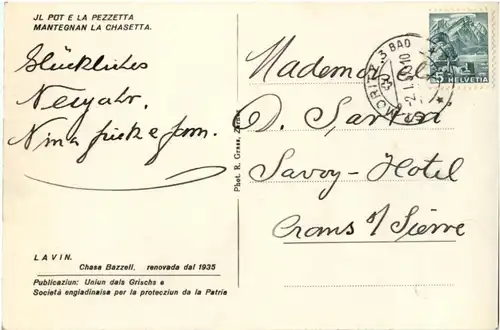 JL PÖT E LA PEZZETTA
MANTEGNAN LA CHASETTA.
Glückliches
Neujahr.
Nina
LAVIN.
Chasa Bazzell, renovada dal 1935
Publicaziun: Uniun dals Grischs e
Società engiadinaisa per la protecziun da la Patria
Phot. R. Grass, Zernez
ST. MORITZ 3 BAD
HELVETIA
5
Mademoiselle
Savoy-Hotel
Crans s/ Sierre